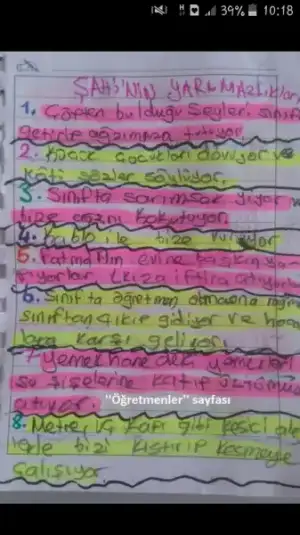 39% 10:18
ŞAHİ'NİN YARAMAZlıkları
1. Çöpten bulduğu Şeyleri sınıfa
getirip ağzımman tutuyor.
2. Küçük çocukları dövüyor ve
kötü sözler söylüyor.
3. Sınıfta sarımsak yiyor
bize ağzını kokutuyor.
4. kablo ile bize vuruyor
5. Fatma'nın evine baskın
yorlar (kıza iftira atıyorlar
6. Sınıfta öğretmen olmasına rağmen
sınıftan çıkıp gidiyor ve
lara karşı geliyor.
7. yemekhane deki yemekleri
su şişelerine katıp üstümüze
atıyor.
"Öğretmenler" sayfası
8. Metre, uç kapı gibi kesici
lerle bizi kıstırıp kesmeye
çalışıyor.